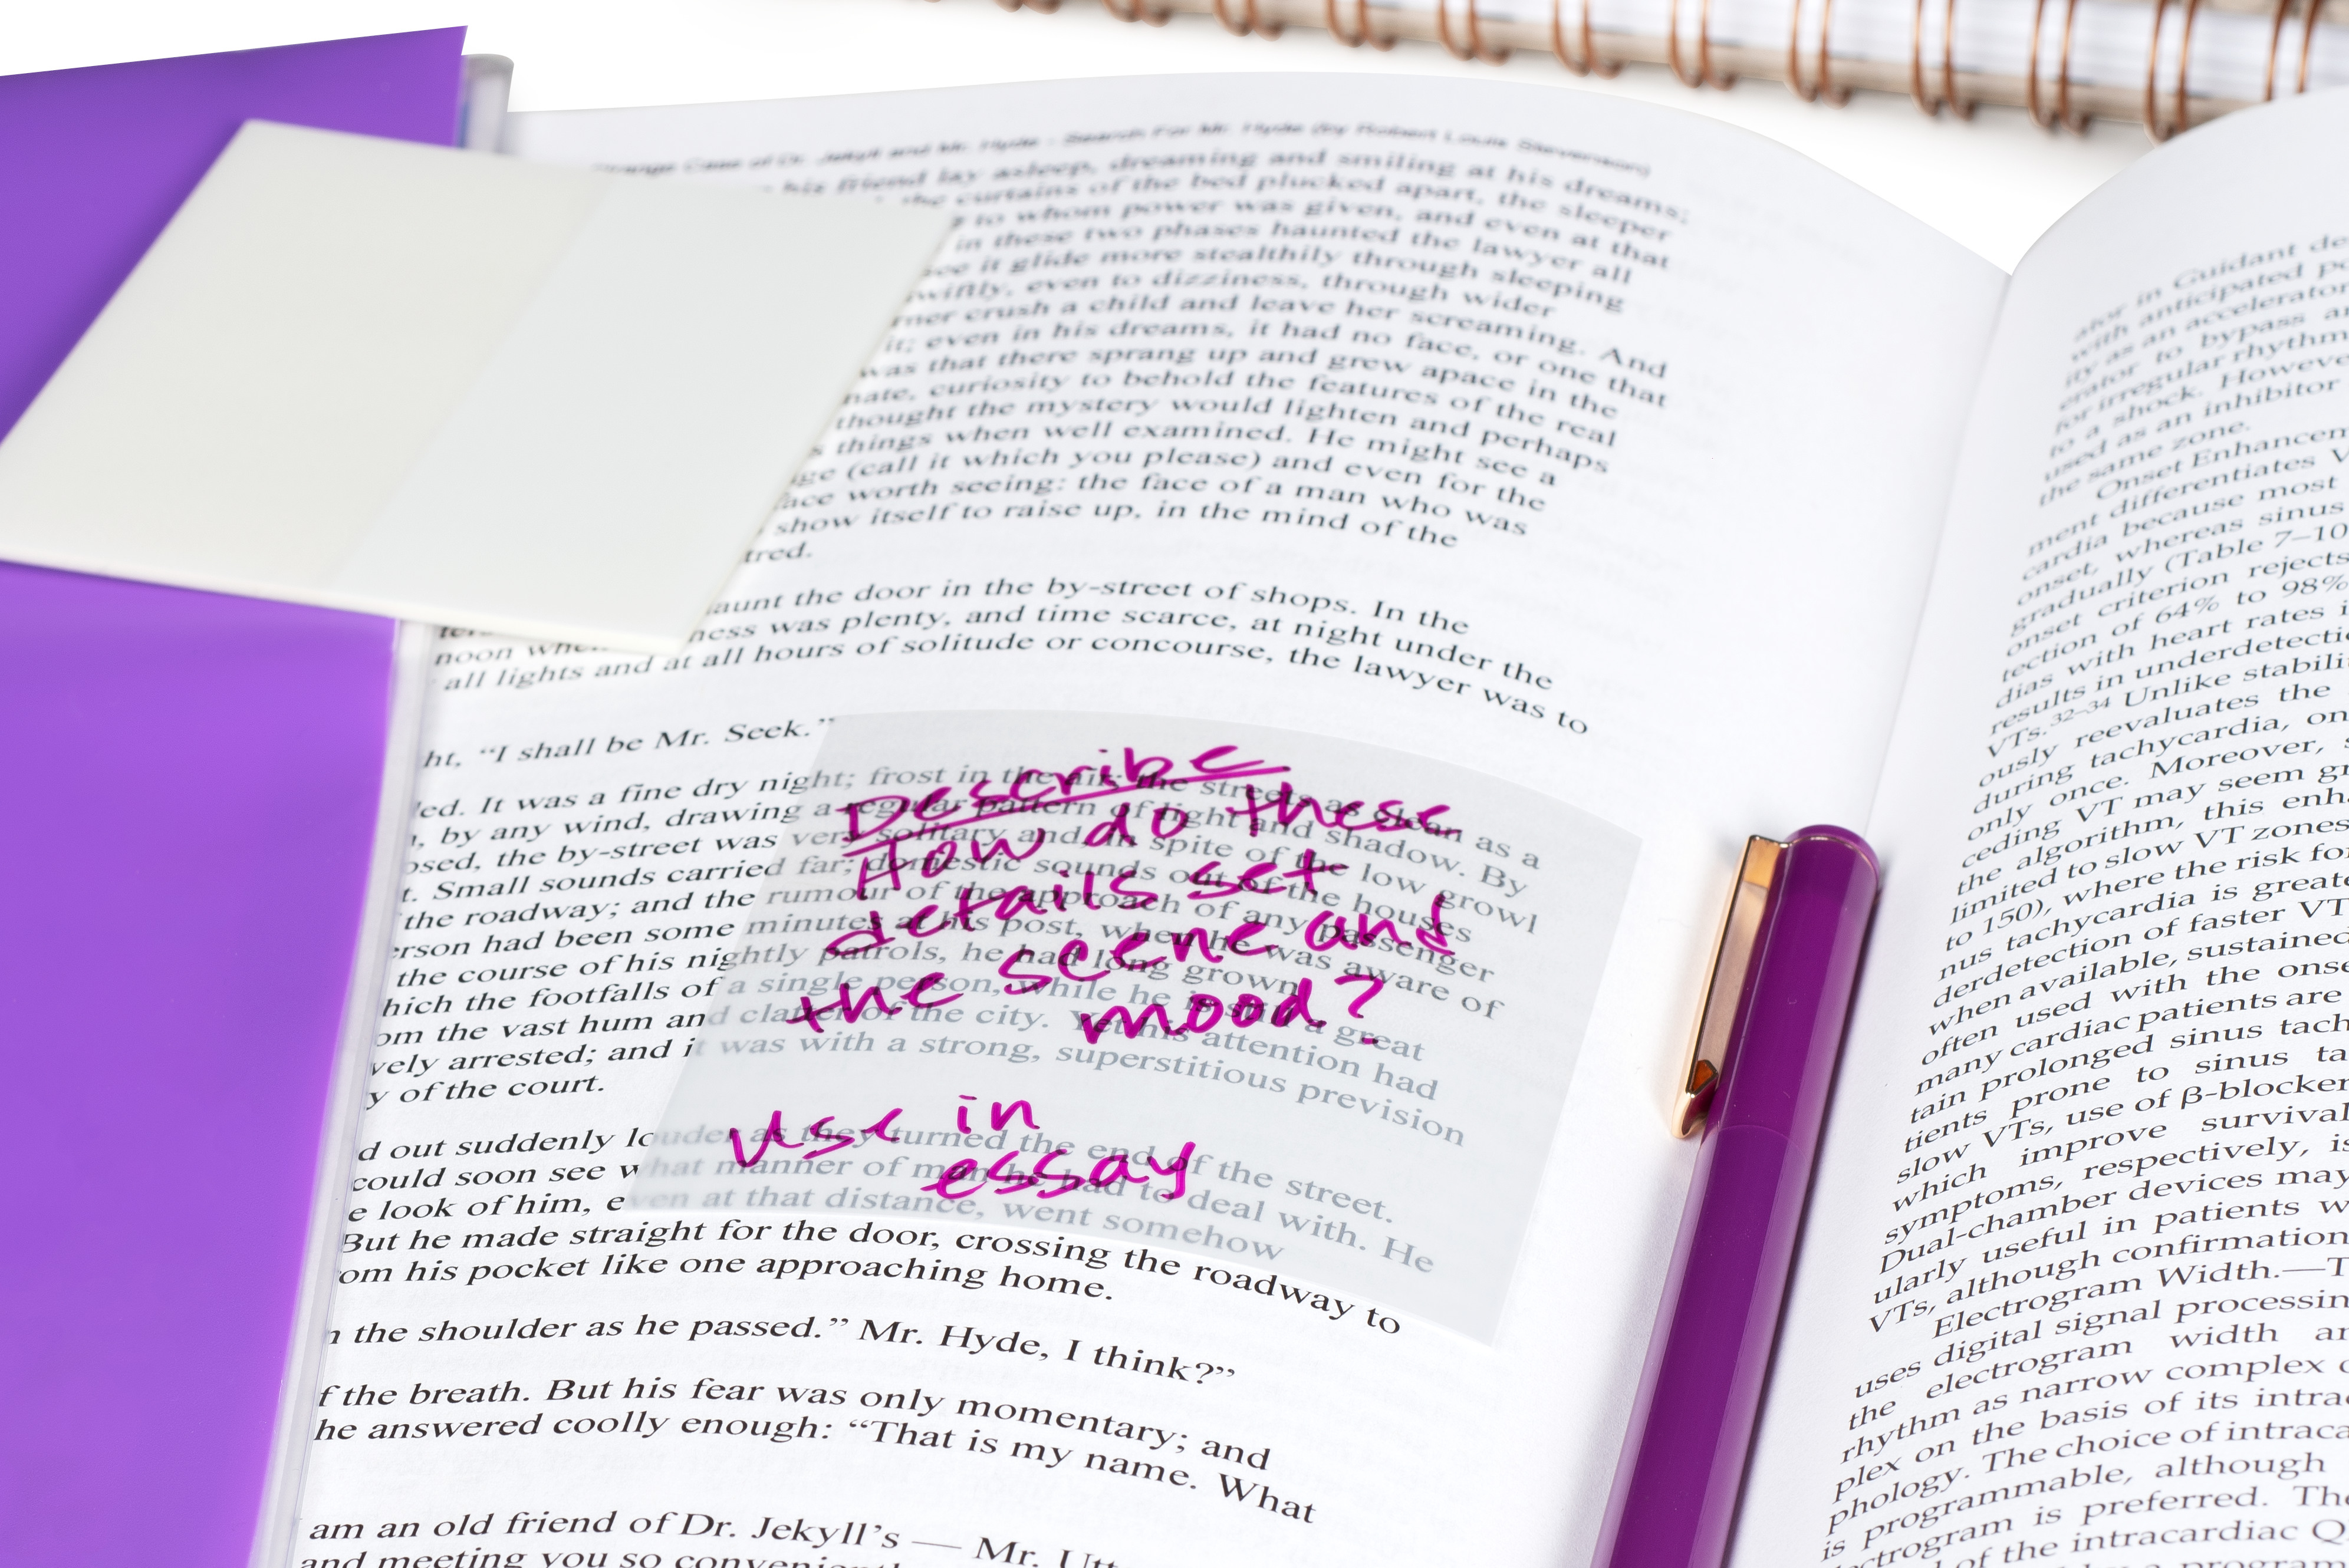 Strange Case of Dr. Jekyll and Mr. Hyde - Search For Mr. Hyde (by Robert Louis Stevenson)
his friend lay asleep, dreaming and smiling at his dreams;
the curtains of the bed plucked apart, the sleeper
to whom power was given, and even at that
in these two phases haunted the lawyer all
see it glide more stealthily through sleeping
wiftly, even to dizziness, through wider
rner crush a child and leave her screaming. And
it; even in his dreams, it had no face, or one that
was that there sprang up and grew apace in the
nate, curiosity to behold the features of the real
thought the mystery would lighten and perhaps
s things when well examined. He might see a
ge (call it which you please) and even for the
face worth seeing: the face of a man who was
show itself to raise up, in the mind of the
tred.
aunt the door in the by-street of shops. In the
noon when ness was plenty, and time scarce, at night under the
all lights and at all hours of solitude or concourse, the lawyer was to
ht, “I shall be Mr. Seek.”
led. It was a fine dry night; frost in the air; the streets as clean as a
, by any wind, drawing a regular pattern of light and shadow. By
osed, the by-street was very solitary and, in spite of the low growl
t. Small sounds carried far; domestic sounds out of the houses
the roadway; and the rumour of the approach of any passenger
erson had been some minutes at his post, when he was aware of
the course of his nightly patrols, he had long grown
hich the footfalls of a single person, while he is still a great
om the vast hum and clatter of the city. Yet his attention had
vely arrested; and it was with a strong, superstitious prevision
y of the court.
d out suddenly louder as they turned the end of the street.
could soon see what manner of man he had to deal with. He
e look of him, even at that distance, went somehow
But he made straight for the door, crossing the roadway to
om his pocket like one approaching home.
n the shoulder as he passed.” Mr. Hyde, I think?”
f the breath. But his fear was only momentary; and
he answered coolly enough: “That is my name. What
am an old friend of Dr. Jekyll’s — Mr. Utt
and meeting you so convenient
Describe
How do these
details set
the scene and
mood?
use in
essay
ator in Guidant de
with anticipated pa
ity as an accelerator
erator to bypass a
for irregular rhythm
to a shock. Howeve
used as an inhibitor
the same zone.
Onset Enhancem
ment differentiates V
cardia because most
onset, whereas sinus
gradually (Table 7–10
onset criterion rejects
tection of 64% to 98%
dias with heart rates i
results in underdetecti
VTs.32–34 Unlike stabili
ously reevaluates the
during tachycardia, on
only once. Moreover, s
ceding VT may seem gr
the algorithm, this enh
limited to slow VT zones
to 150), where the risk fo
nus tachycardia is greate
derdetection of faster VT
when available, sustained
often used with the onse
many cardiac patients are
tain prolonged sinus tach
tients prone to sinus ta
slow VTs, use of β-blocker
which improve survival
symptoms, respectively, is
Dual-chamber devices may
ularly useful in patients w
VTs, although confirmation
Electrogram Width.—T
uses digital signal processin
the electrogram width an
rhythm as narrow complex o
plex on the basis of its intra
phology. The choice of intraca
is programmable, although
ctrogram is preferred. The
d of the intracardiac Q